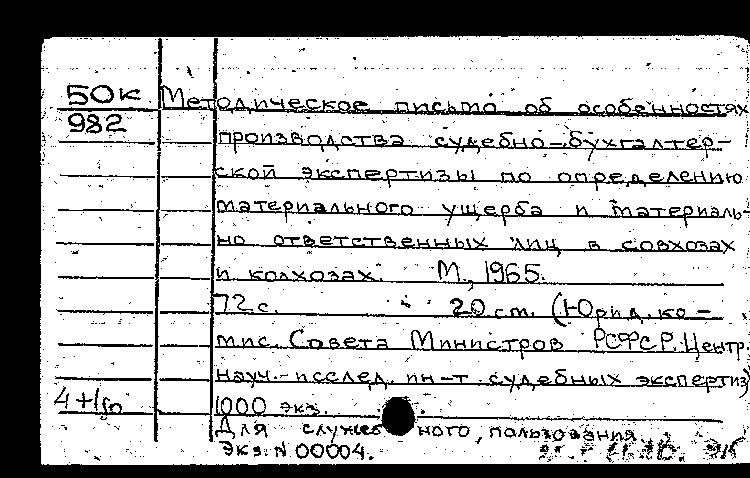 50к Методическое письмо об особенностях
982
производства судебно-бухгалтер-
ской экспертизы по определению
материального ущерба и материаль-
но ответственных лиц в совхозах
и колхозах. М., 1965.
72 с. 20 см. (Юрид. ко-
мис. Совета Министров РСФСР. Центр.
науч.-исслед. ин-т судебных экспертиз)
1000 экз.
Для служебного пользования
Экз. N 00004.